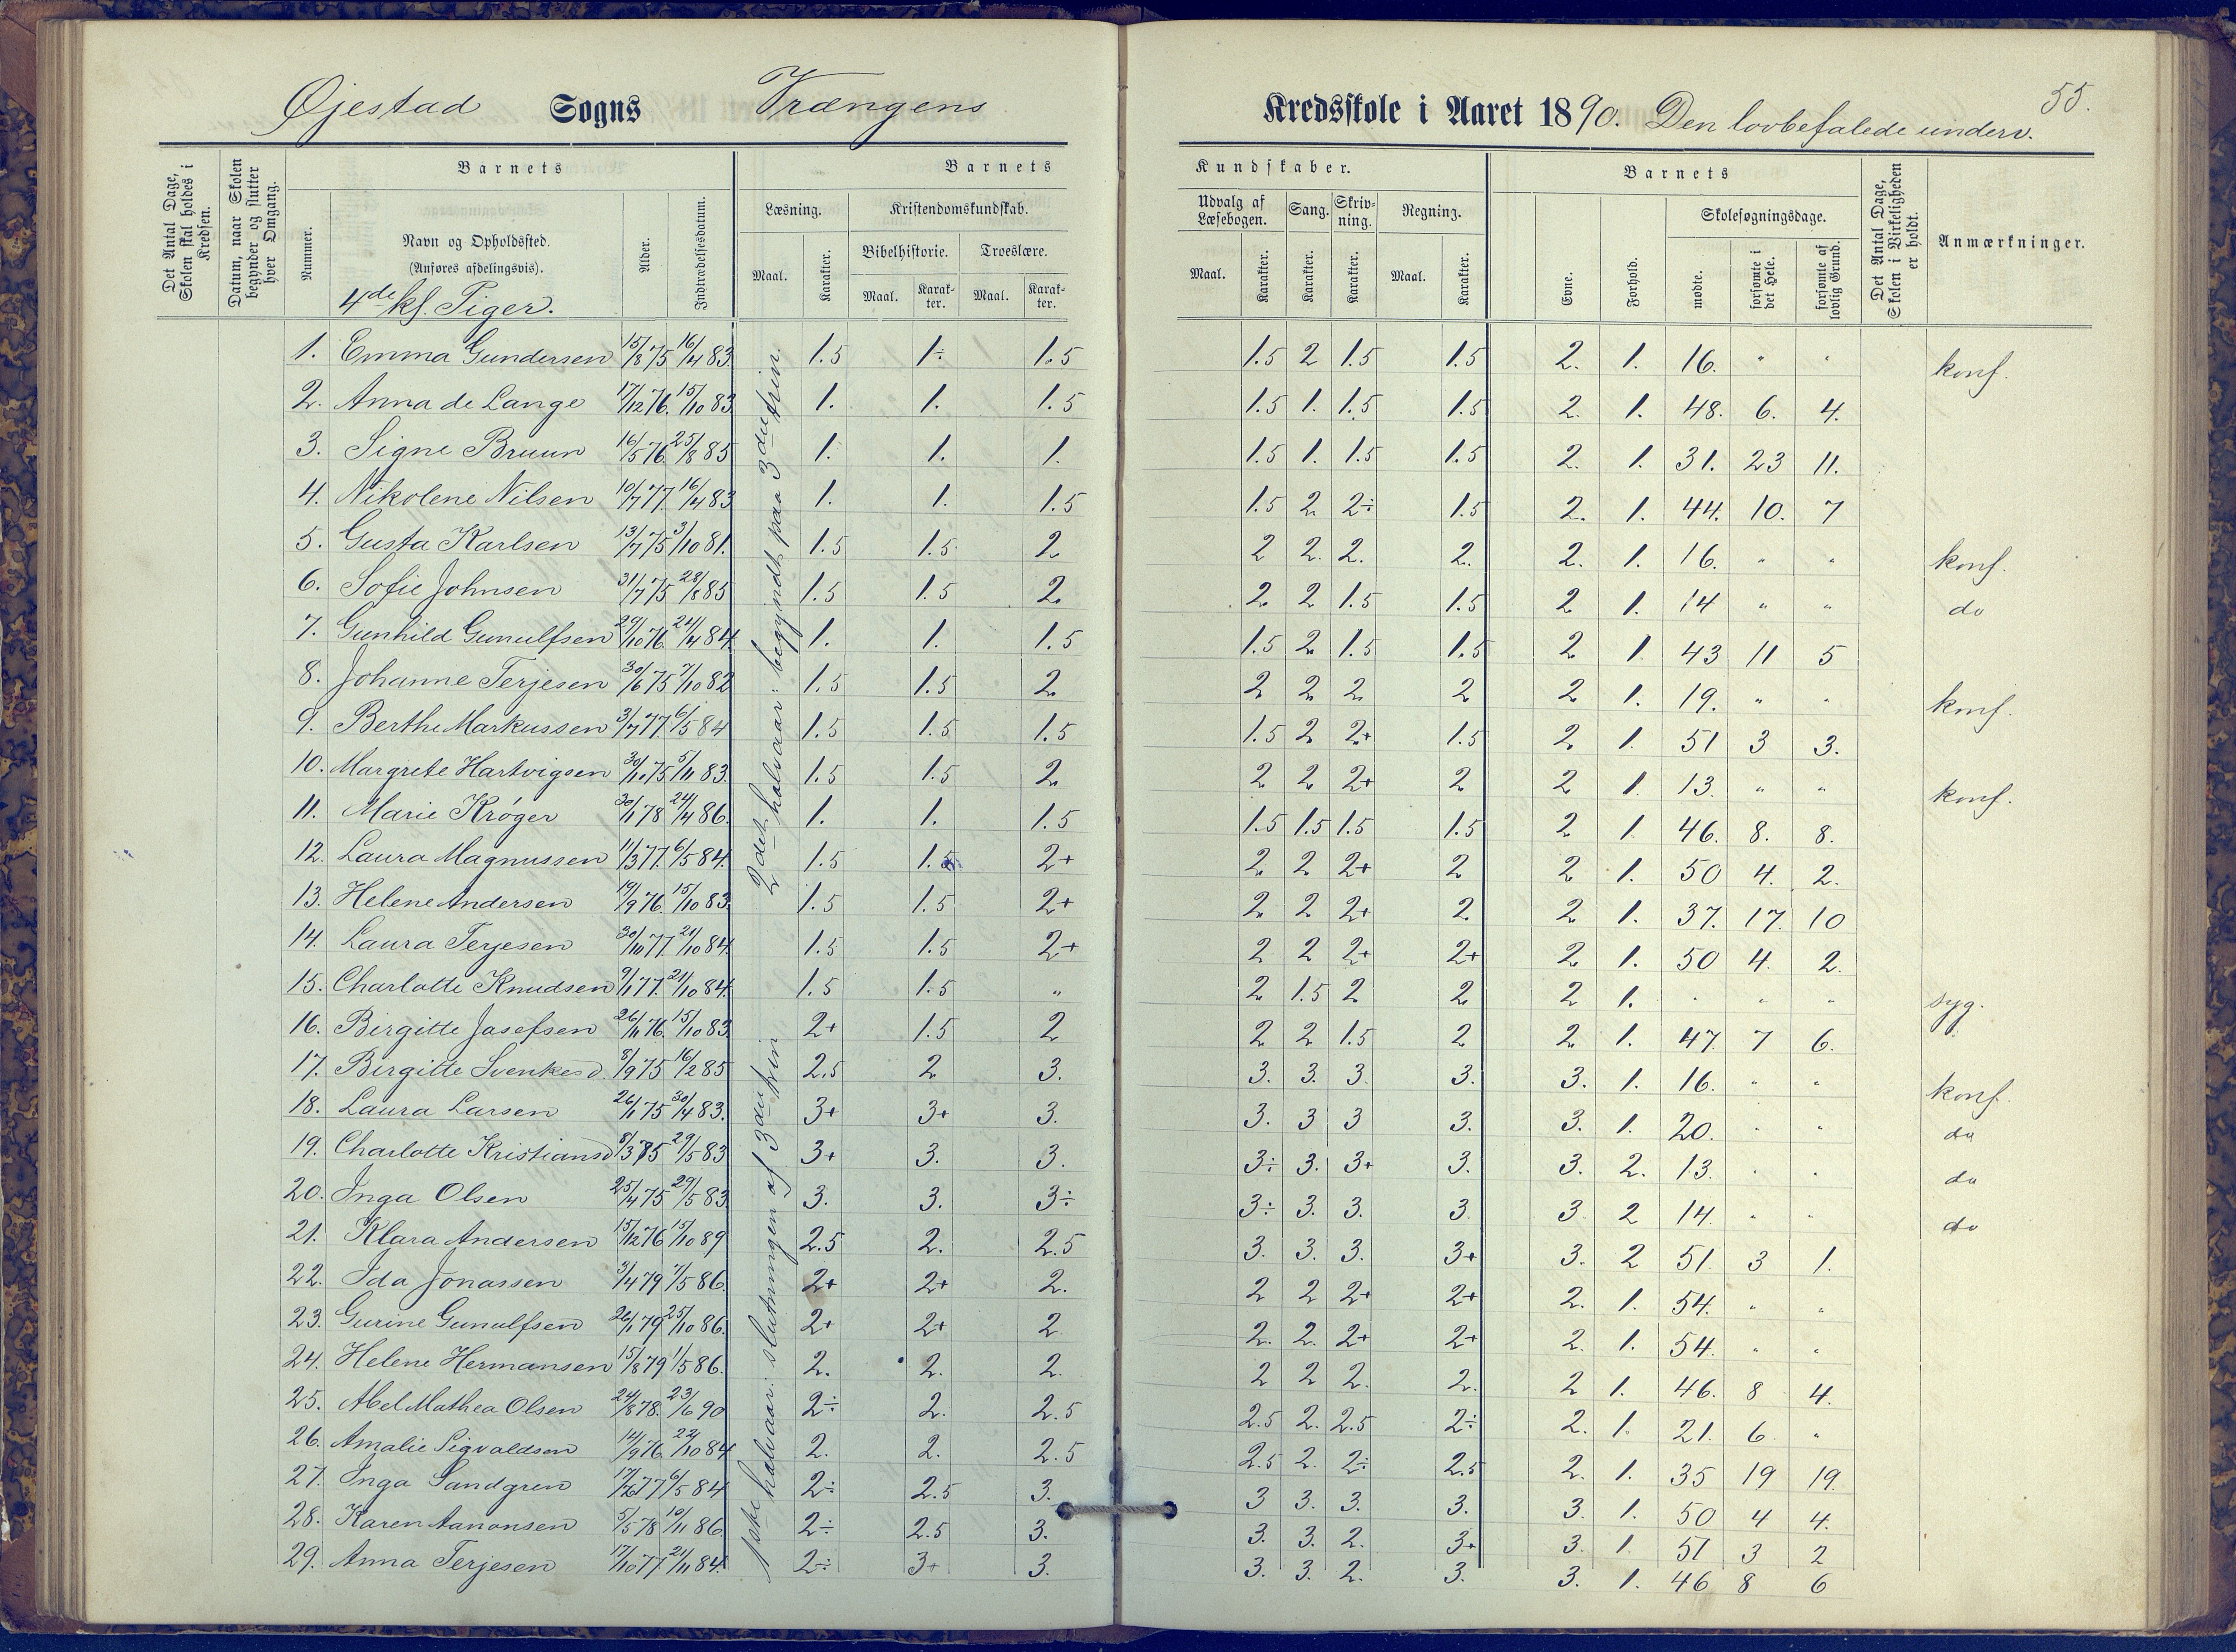 55.
Øjestad Sogns Trængens Kredsskole i Aaret 1890. Den lovbefalede underv.
Det Antal Dage, Skolen skal holdes i Kredsen.
Datum, naar Skolen begynder og slutter hver Omgang.
Barnets
Nummer.
Navn og Opholdssted.
(Anføres afdelingsvis).
4de kl. Piger.
Alder.
Indtrædelsesdatum.
Barnets Kundskaber.
Læsning. Kristendomskundskab. Udvalg af Læsebogen. Sang. Skrivning. Regning.
Bibelhistorie. Troeslære.
Maal. Karakter. Maal. Karakter. Maal. Karakter. Maal. Karakter. Karakter. Karakter. Maal. Karakter.
Barnets
Evne. Forhold. Skolesøgningsdage.
mødte. forsømte i det Hele. forsømte af lovlig Grund.
Det Antal Dage, Skolen i Virkeligheden er holdt.
Anmærkninger.
2det halvaar: begyndt paa 3die trin.
1ste halvaar: slutningen af 3die trin
1. Emma Gundersen 15/8 75 16/4 83. 1.5 1÷ 1.5 1.5 2 1.5 1.5 2. 1. 16. " " konf.
2. Anna de Lange 17/12 76. 15/10 83 1. 1. 1.5 1.5 1. 1.5 1.5 2. 1. 48. 6. 4.
3. Signe Bruun 16/5 76. 25/8 85 1. 1. 1. 1.5 1. 1.5 1.5 2. 1. 31. 23 11.
4. Nikolene Nilsen 10/7 77. 16/4 83 1. 1. 1.5 1.5 2 2÷ 1.5 2. 1. 44. 10. 7
5. Gusta Karlsen 13/7 75 3/10 81. 1.5 1.5 2 2 2. 2. 2. 2. 1. 16. " " konf.
6. Sofie Johnsen 31/7 75 28/8 85 1.5 1.5 2. 2 2 1.5 1.5 2 1. 14 " " do
7. Gunhild Gunulfsen 29/10 76. 24/4 84. 1. 1. 1.5 1.5 2 1.5 1.5 2 1. 43 11 5
8. Johanne Terjesen 30/6 75 7/10 82 1.5 1.5 2. 2 2 2 2 2 1. 19. " " konf.
9. Berthe Markussen 3/7 77. 6/5 84 1.5 1.5 1.5 1.5 2 2+ 1.5 2 1. 51 3 3.
10. Margrete Hartvigsen 30/10 75 5/11 83. 1.5 1.5 2. 2 2 2+ 2 2 1. 13. " " konf.
11. Marie Krøger 30/1 78 24/4 86. 1. 1. 1.5 1.5 1.5 1.5 1.5 2 1. 46. 8. 8.
12. Laura Magnussen 11/3 77. 6/5 84. 1.5 1.5 2+ 2 2 2+ 2 2 1. 50 4. 2.
13. Helene Andersen 19/9 76. 15/10 83. 1.5 1.5 2+ 2 2 2+ 2 2 1. 37. 17. 10
14. Laura Terjesen 30/10 77. 21/10 84. 1.5 1.5 2+ 2 2 2+ 2+ 2 1. 50 4. 2.
15. Charlotte Knudsen 9/1 77. 21/10 84. 1.5 1.5 " 2 1.5 2 2 2 1. " " " syg.
16. Birgitte Josefsen 26/11 76. 15/10 83. 2+ 1.5 2 2 2 1.5 2 2 1. 47. 7 6.
17. Birgitte Svenkesd. 8/9 75 16/2 85 2.5 2 3. 3. 3. 3 3. 3. 1. 16. " " konf.
18. Laura Larsen 26/1 75 30/4 83. 3+ 3+ 3. 3. 3 3 3. 3. 1. 20. " " do
19. Charlotte Kristiansd 8/3 75 29/5 83 3+ 3. 3. 3÷ 3. 3+ 3. 3. 2. 13. " " do
20. Inga Olsen 25/4 75 29/5 83. 3. 3. 3÷ 3÷ 3. 3. 3 3 2 14. " " do
21. Klara Andersen 15/12 76 15/10 89 2.5 2. 2.5 3. 3. 3. 3+ 3. 2 51. 3 1.
22. Ida Jonassen 3/4 79 7/5 86. 2+ 2+ 2. 2 2 2+ 2+ 2. 1. 54. " "
23. Gurine Gunulfsen 26/1 79 25/10 86. 2+ 2+ 2 2. 2. 2+ 2+ 2. 1. 54. " "
24. Helene Hermansen 15/8 79 1/5 86. 2. 2. 2. 2 2 2. 2. 2 1. 46. 8 4.
25. Abel Mathea Olsen 24/8 78. 23/6 90 2÷ 2. 2.5 2.5 2. 2.5 2÷ 2. 1. 21. 6 "
26. Amalie Sigvaldsen 14/9 76. 22/10 84 2. 2. 2.5 2.5 2. 2÷ 2.5 2. 1. 35 19 19.
27. Inga Sandgren 17/6 77 6/5 84 2÷ 2.5 3. 3 3. 3. 3. 3. 1. 50 4 4.
28. Karen Aanonsen 5/5 78 10/11 86. 2÷ 2.5 3. 3. 3. 2. 3+ 3. 1. 51 3 2
29. Anna Terjesen 17/10 77. 21/11 84. 2÷ 3+ 3. 3. 3. 2. 3. 3. 1. 46 8 6